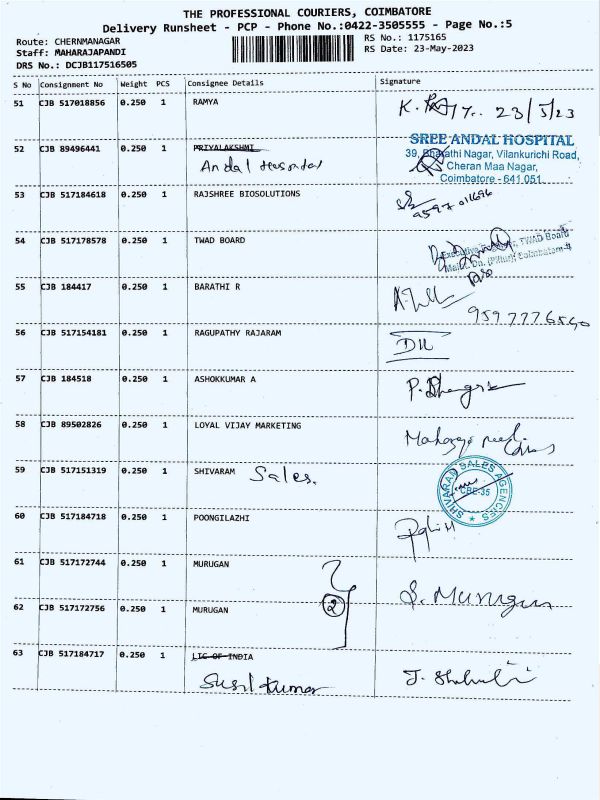 THE PROFESSIONAL COURIERS, COIMBATORE
Delivery Runsheet - PCP - Phone No.:0422-3505555 - Page No.:5
Route: CHERNMANAGAR RS No.: 1175165
Staff: MAHARAJAPANDI RS Date: 23-May-2023
DRS No.: DCJB117516505
S No Consignment No Weight PCS Consignee Details Signature
51 CJB 517018856 0.250 1 RAMYA 23/5/23
52 CJB 89496441 0.250 1 PRIYALAKSHMI
Andal
SREE ANDAL HOSPITAL
39, Bharathi Nagar, Vilankurichi Road,
Cheran Maa Nagar,
Coimbatore - 641 051
53 CJB 517184618 0.250 1 RAJSHREE BIOSOLUTIONS
54 CJB 517178578 0.250 1 TWAD BOARD
TWAD Board
55 CJB 184417 0.250 1 BARATHI R
56 CJB 517154181 0.250 1 RAGUPATHY RAJARAM
57 CJB 184518 0.250 1 ASHOKKUMAR A
58 CJB 89502826 0.250 1 LOYAL VIJAY MARKETING
59 CJB 517151319 0.250 1 SHIVARAM Sales.
SHIVARAM SALES AGENCIES
CBE-35
60 CJB 517184718 0.250 1 POONGILAZHI
61 CJB 517172744 0.250 1 MURUGAN
S. Murugan
62 CJB 517172756 0.250 1 MURUGAN 2
63 CJB 517184717 0.250 1 LIC OF INDIA
Susil Kumar